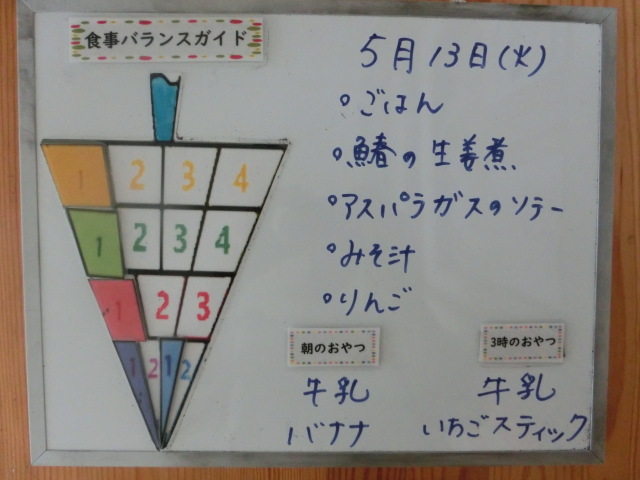 食事バランスガイド
5月13日(火)
○ごはん
○鰆の生姜煮
○アスパラガスのソテー
○みそ汁
○りんご
1 2 3 4
1 2 3 4
1 2 3
1 2 1 2
朝のおやつ
牛乳
バナナ
3時のおやつ
牛乳
いちごスティック